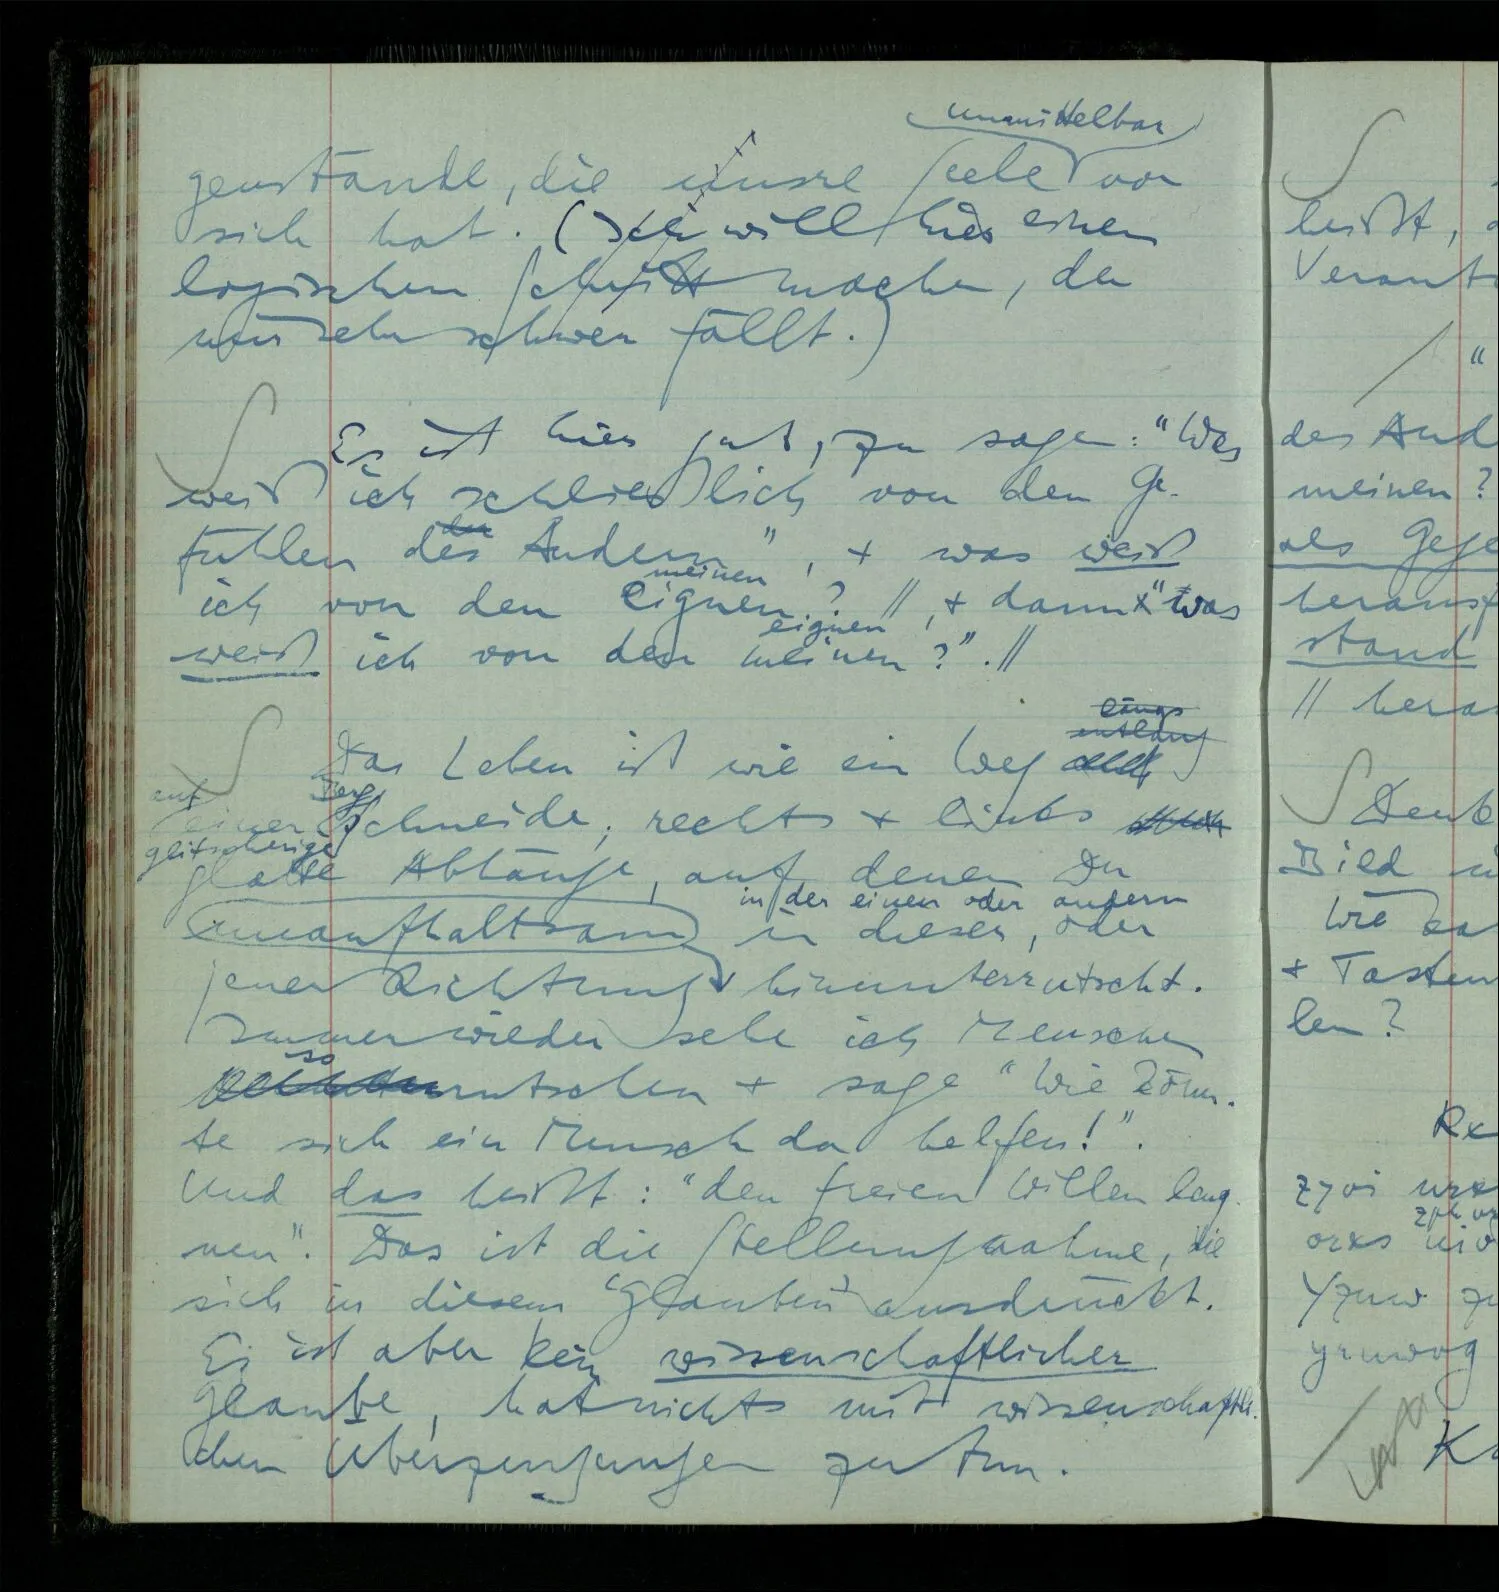 unmittelbar
genstände, die unsre Seele vor
sich hat. (Ich will hier einen
logischen Schritt machen, der
mir sehr schwer fällt.)
Es ist hier gut, zu sagen: "Was
weiß ich schließlich von den Ge-
der
fühlen des Andern", + was weiß
meinen
ich von den eignen? // , + dann "was
eignen
weiß ich von den meinen?". //
längs
entlang
Das Leben ist wie ein Weg
auf Berg
einer Schneide; rechts + links
glitscherige
glatte Abhänge, auf denen Du
in der einen oder andern
unaufhaltsam in dieser, oder
jener Richtung hinunterrutscht.
Immer wieder sehe ich Menschen
so
rutschen + sage "Wie könn-
te sich ein Mensch da helfen!".
Und das heißt: "den freien Willen leug-
nen". Das ist die Stellungnahme, die
sich in diesem 'Glauben' ausdrückt.
Er ist aber kein wissenschaftlicher
Glaube, hat nichts mit wissenschaftli-
chen Überzeugungen zu tun.
heißt,
Verant
"
des And
meinen?
als Gege
heraus
stand
// hera
Denk
Bild
Wie
+ Tasten
len?